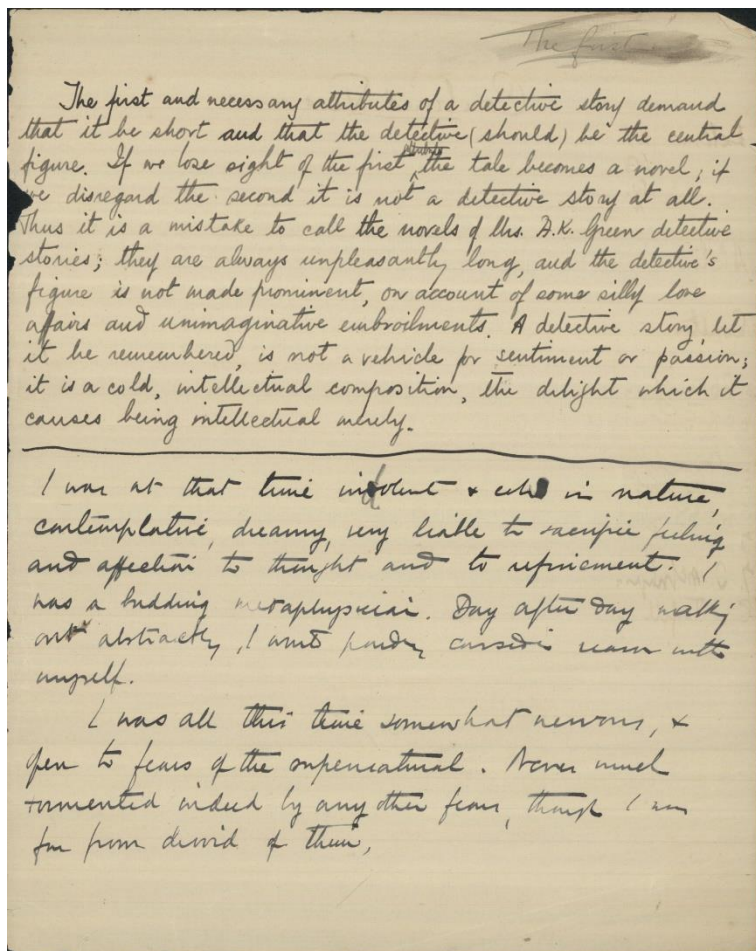 The first
The first and necessary attributes of a detective story demand
that it be short and that the detective (should) be the central
attribute
figure. If we lose sight of the first, the tale becomes a novel; if
we disregard the second it is not a detective story at all.
Thus it is a mistake to call the novels of Mrs. A.K. Green detective
stories; they are always unpleasantly long, and the detective's
figure is not made prominent, on account of some silly love
affairs and unimaginative embroilments. A detective story, let
it be remembered, is not a vehicle for sentiment or passion;
it is a cold, intellectual composition, the delight which it
causes being intellectual merely.
I was at that time indolent & in nature,
contemplative, dreamy, very liable to sacrifice feeling
and affection to thought and to refinement. I
was a budding metaphysician. Day after day walking
out abstractly, I reason with
myself.
I was all this time somewhat nervous, &
open to fears of the supernatural. Never much
tormented indeed by any other fears, though I was
far from devoid of them,